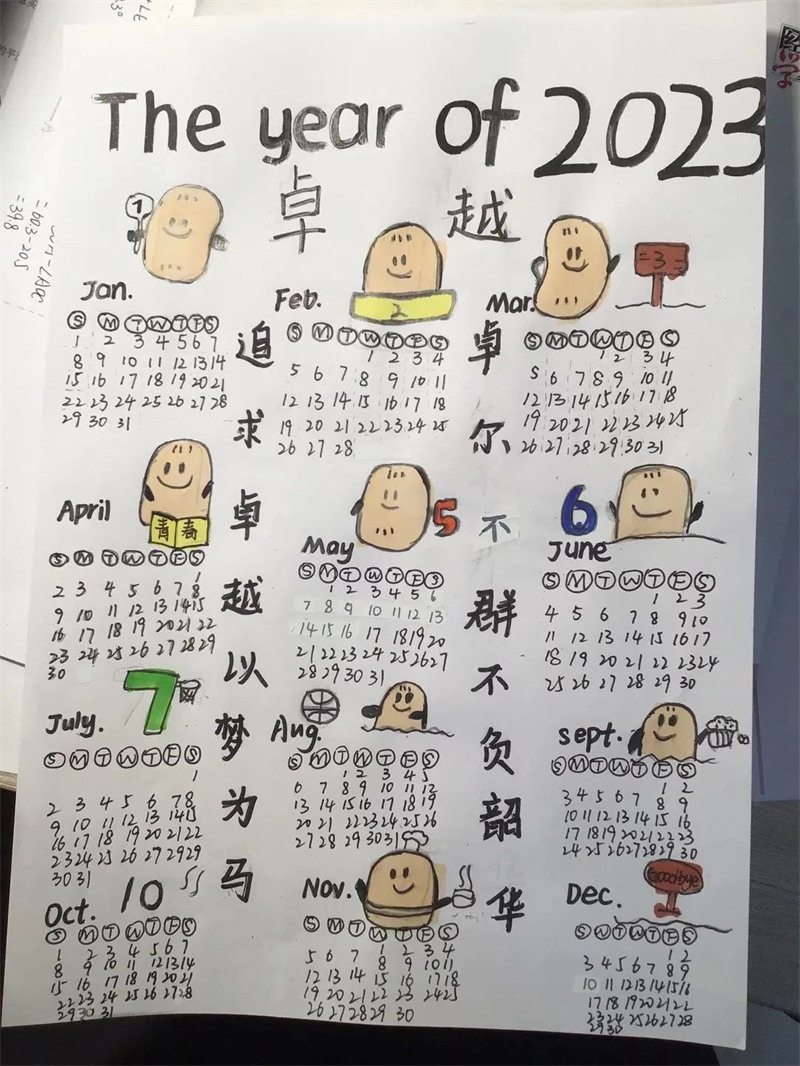 The year of 2023
卓越
1
Jan.
S M T W T F S
1 2 3 4 5 6 7
8 9 10 11 12 13 14
15 16 17 18 19 20 21
22 23 24 25 26 27 28
29 30 31
2
Feb.
S M T W T F S
1 2 3 4
5 6 7 8 9 10 11
12 13 14 15 16 17 18
19 20 21 22 23 24 25
26 27 28
=3=
Mar.
S M T W T F S
1 2 3 4
5 6 7 8 9 10 11
12 13 14 15 16 17 18
19 20 21 22 23 24 25
26 27 28 29 30 31
追求卓越以梦为马
卓尔不群不负韶华
青春
April
S M T W T F S
1
2 3 4 5 6 7 8
9 10 11 12 13 14 15
16 17 18 19 20 21 22
23 24 25 26 27 28 29
30
5
May
S M T W T F S
1 2 3 4 5 6
7 8 9 10 11 12 13
14 15 16 17 18 19 20
21 22 23 24 25 26 27
28 29 30 31
6
June
S M T W T F S
1 2 3
4 5 6 7 8 9 10
11 12 13 14 15 16 17
18 19 20 21 22 23 24
25 26 27 28 29 30
7
July.
S M T W T F S
1
2 3 4 5 6 7 8
9 10 11 12 13 14 15
16 17 18 19 20 21 22
23 24 25 26 27 28 29
30 31
Aug.
S M T W T F S
1 2 3 4 5
6 7 8 9 10 11 12
13 14 15 16 17 18 19
20 21 22 23 24 25 26
27 28 29 30 31
sept.
S M T W T F S
1 2
3 4 5 6 7 8 9
10 11 12 13 14 15 16
17 18 19 20 21 22 23
24 25 26 27 28 29 30
10
Oct.
S M T W T F S
1 2 3 4 5 6 7
8 9 10 11 12 13 14
15 16 17 18 19 20 21
22 23 24 25 26 27 28
29 30 31
Nov.
S M T W T F S
1 2 3 4
5 6 7 8 9 10 11
12 13 14 15 16 17 18
19 20 21 22 23 24 25
26 27 28 29 30
Goodbye
Dec.
S M T W T F S
1 2
3 4 5 6 7 8 9
10 11 12 13 14 15 16
17 18 19 20 21 22
23 24 25 26 27 28
29 30
=603-205
=398